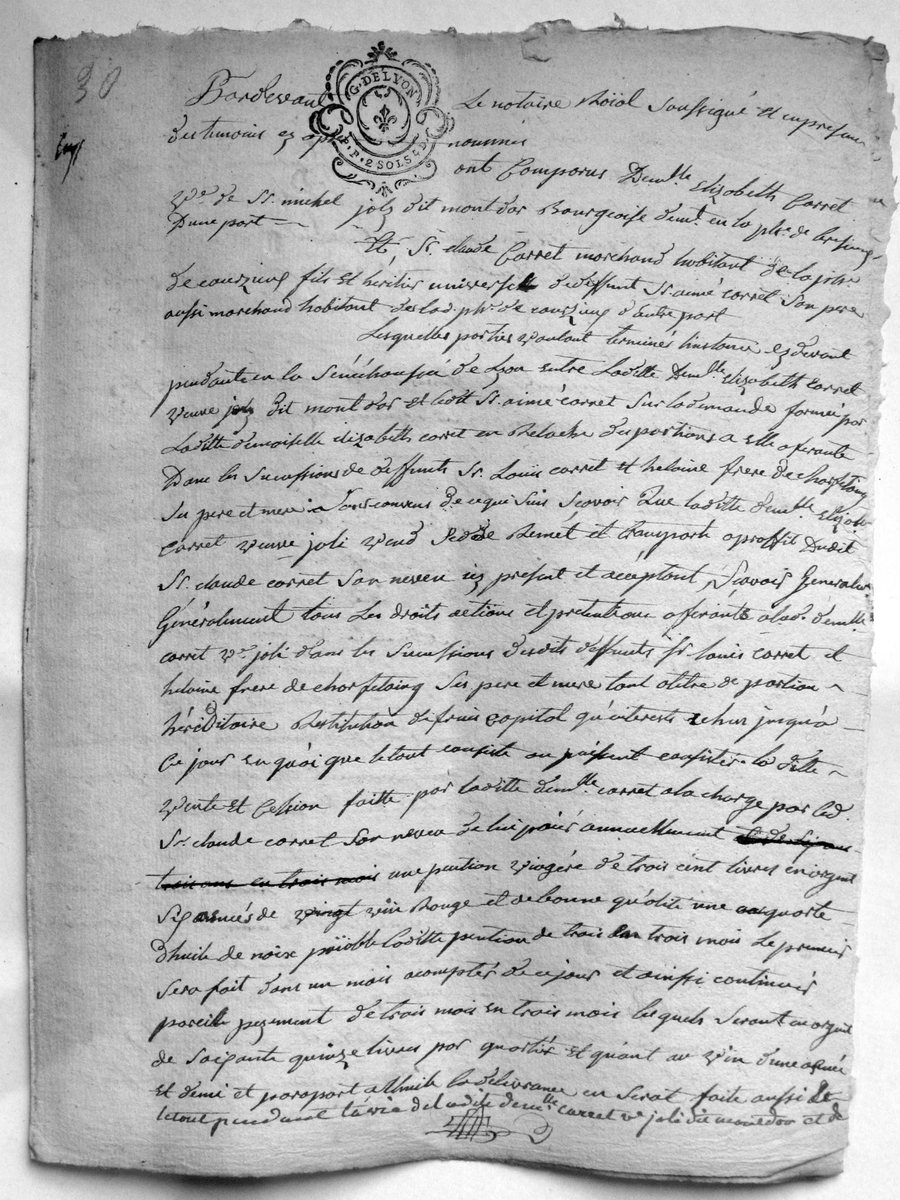 30
G. DE LYON
P. P. 2 SOLS 4 D.
Pardevant Le notaire Roïal Soussigné et en presence
des temoins cy apres nommés
ont Comparus Demlle Elizabeth Carret
Ve. de Sr. michel joly dit mont d'or Bourgeoise demt. en la phe. de
Dune part
Et, Sr. claude Carret marchand habitant de la phe.
de couzieng fils et heritier universelle de deffunt Sr. aimé carret Son pere
aussi marchand habitant de lad. phe. de couzieng d'autre part
Lesquelles parties voulant terminés l'instance cy devant
pendante en la Sénéchaussée de Lyon entre Laditte Demlle Elizabeth carret
veuve joly dit mont d'or et ledit Sr. aimé carret Sur la demande formée par
Laditte demoiselle elizabeth carret en Relache des portions a elle aferante
Dans les Sucessions de deffunts Sr. Louis carret et helaine frere de
Ses pere et mere Sont convenus de ce qui Suis Scavoir Que laditte demlle Eliza
carret veuve joli vend Cedde Remet et transporte a proffit dudit
Sr. claude carret Son neveu icy present et aceptant, Scavoir Generale
Généralement tous Les droits actions et pretentions afferants a lad. demlle
carret Ve. joli dans les Sucessions desdits deffunts Sr. louis carret et
helaine frere de Ses pere et mere tant a titre de portion
héréditaire Restitution de fruis capitol qu'interests echus jusqu'a
Ce jour en quoi que le tout consiste ou puissent consister la ditte
vente et Cession faitte par laditte demlle carret a la charge par led.
Sr. claude carret Son neveu de lui païer annuellement
trois en trois mois une pention viagère de trois cent livres en argent
Six anées de vingt vin Rouge et de bonne qualité une quarte
d'huile de noix païable laditte pention de trois en trois mois Le premier
Sera fait dans un mois acompter de ce jour et ainssi continuer
pareille payement de trois mois en trois mois lesquels Seront en argent
de Soixante quinze livres par quartié et quant au vin d'une anée
et demi et paraport a l'huile la délivrance en Serat faite aussi
le tout pendant la vie de ladite demlle carret ve. joli dit montdor et de